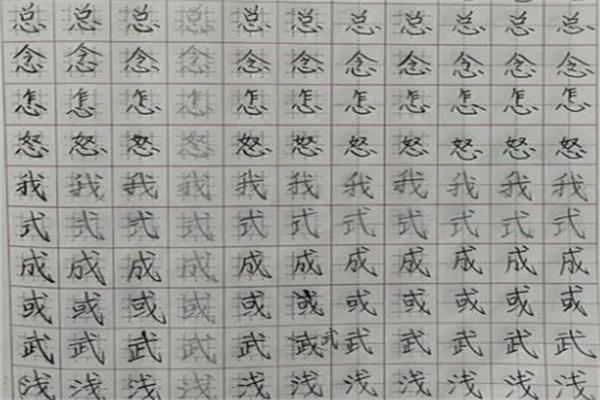 总总总总总总总总总总总
念念念念念念念念念念念
怎怎怎怎怎怎怎怎怎怎怎
怒怒怒怒怒怒怒怒怒怒怒
我我我我我我我我我我我
式式式式式式式式式式式
成成成成成成成成成成成
或或或或或或或或或或或
武武武武武武武武武武武
浅浅浅浅浅浅浅浅浅浅浅